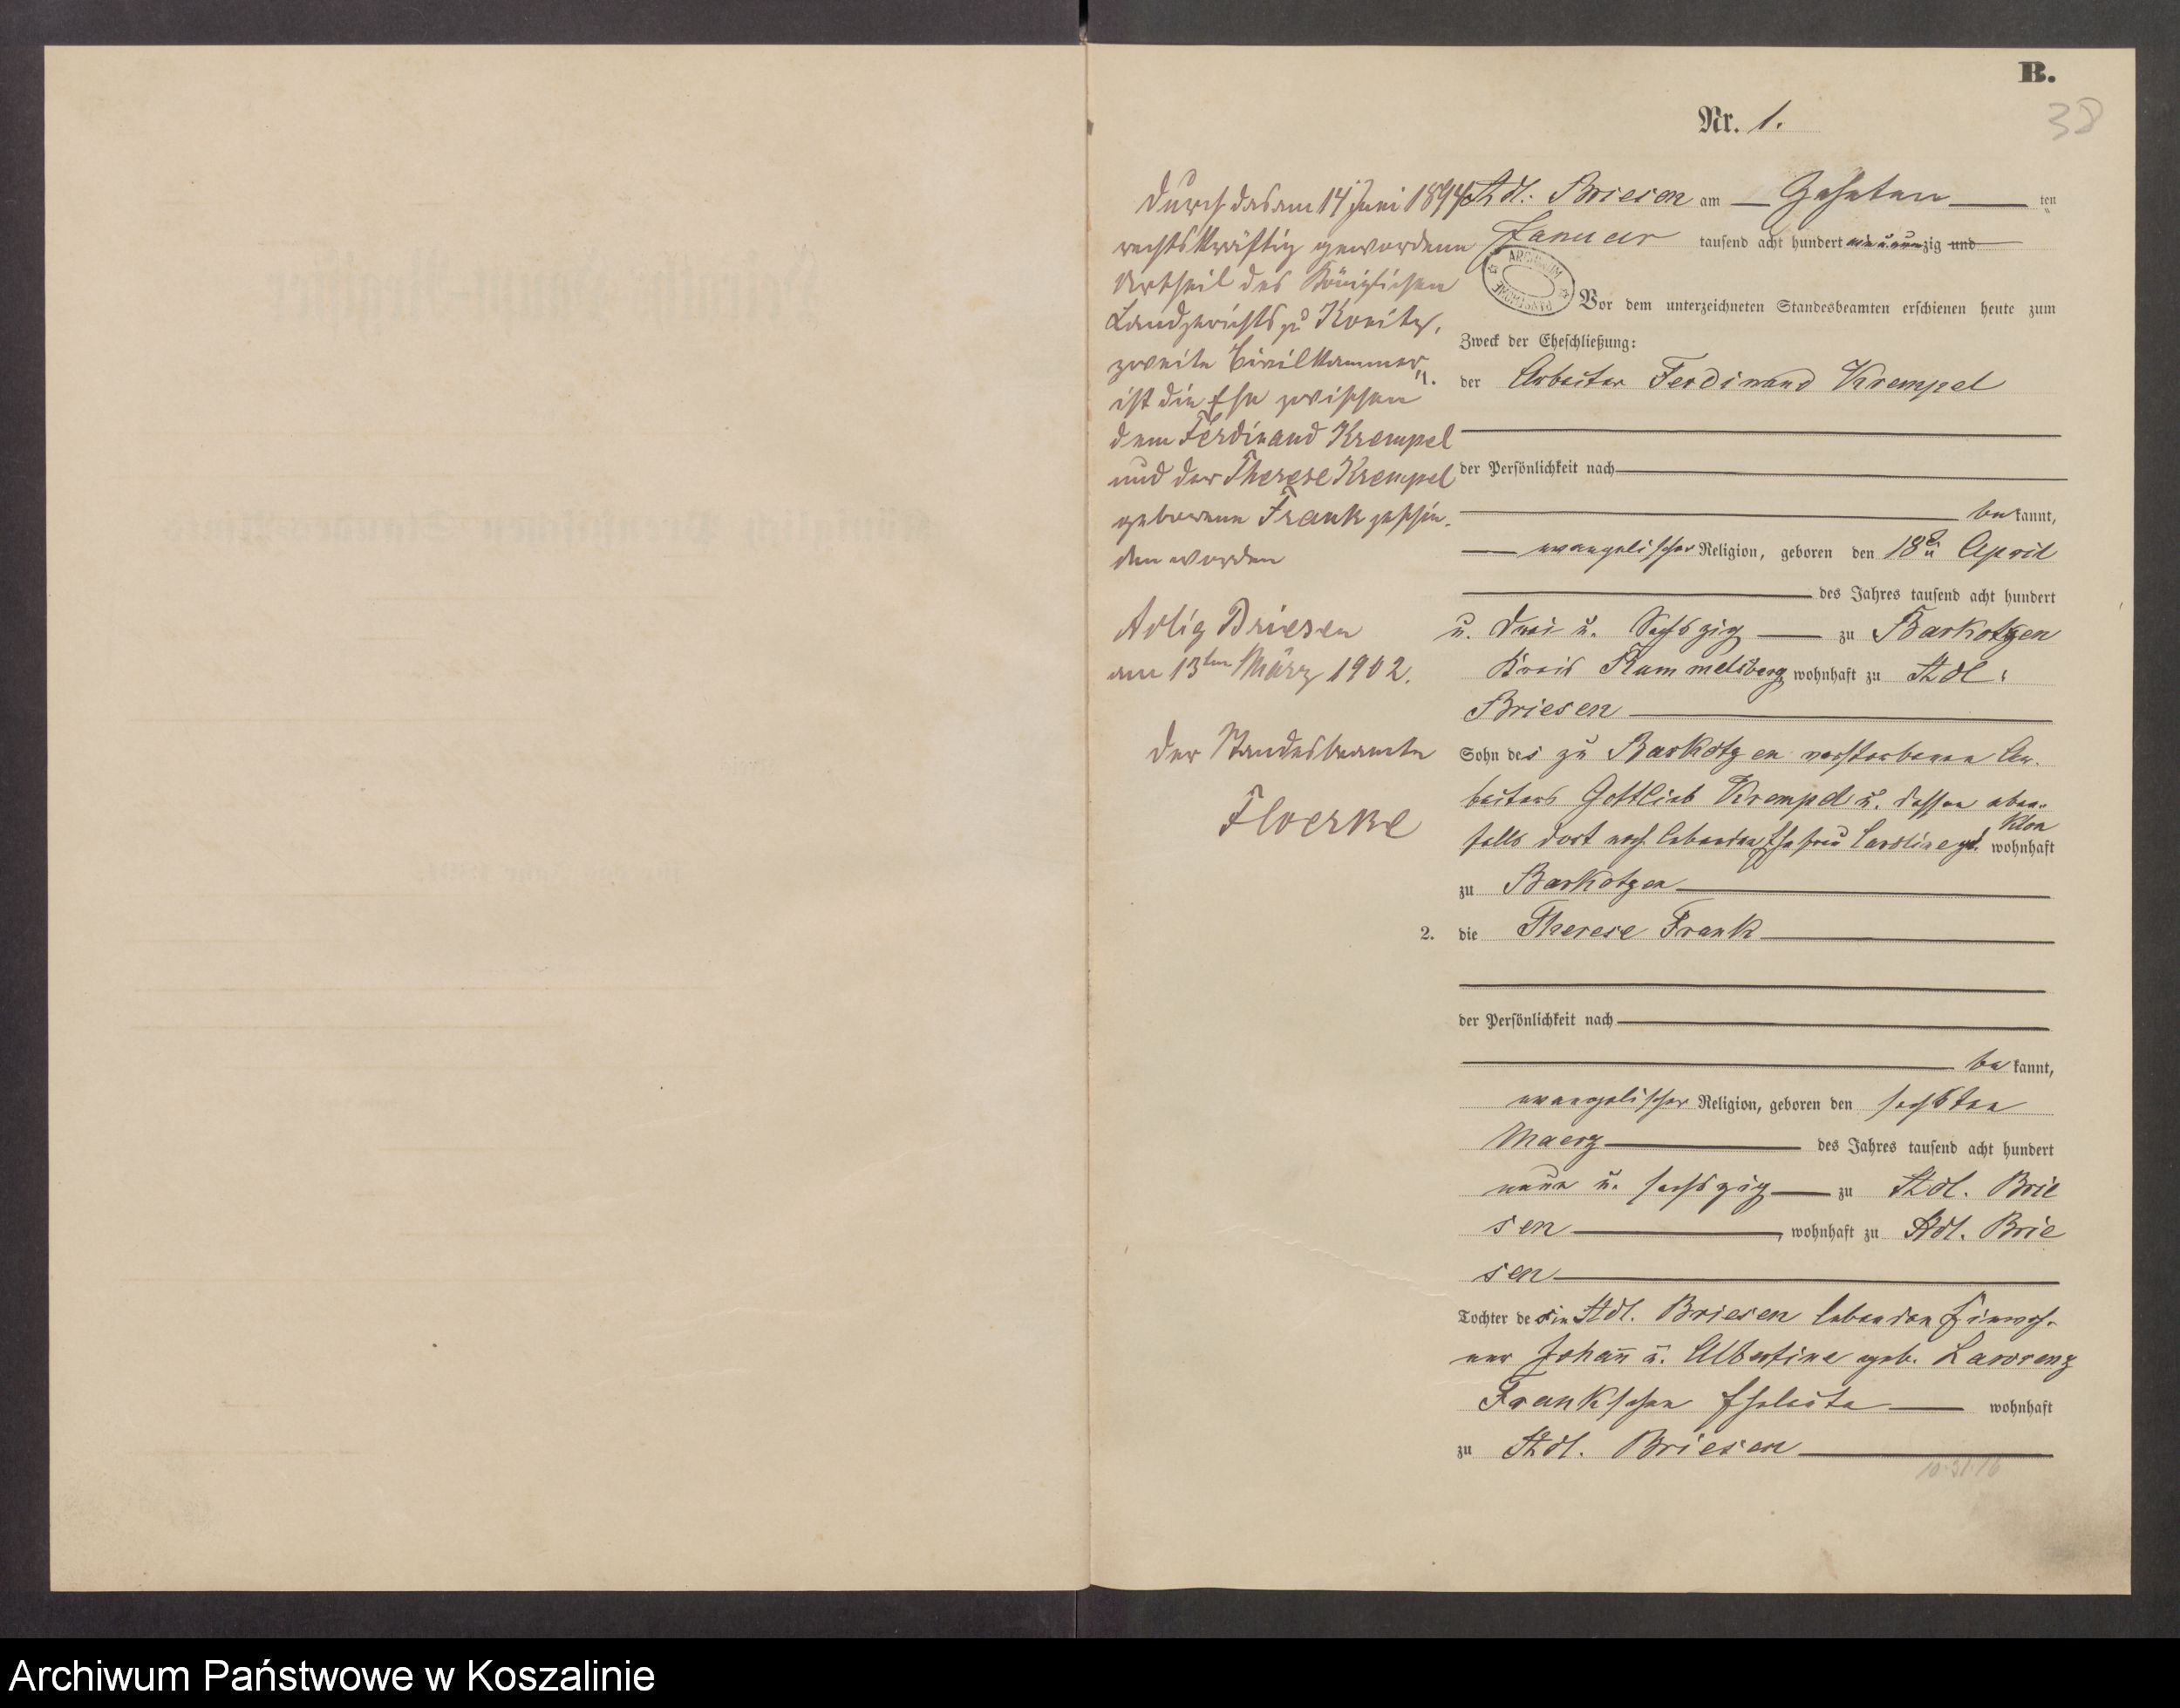 B.
38
Nr. 1.
Durch das am 14 Juni 1894
rechtskräftig gewordene
Urtheil des Königlichen
Landgerichts zu Konitz,
zweite Civilkammer,
ist die Ehe zwischen
dem Ferdinand Krempel
und der Therese Krempel
geborene Frank geschie-
den worden
Adlig Briesen
am 13ten März 1902.
Der Standesbeamte
Floerke
Adl. Briesen am ten
Januar tausend acht hundert ein u. neunzig und
ARCHIWUM PAŃSTWOWE
Vor dem unterzeichneten Standesbeamten erschienen heute zum
Zweck der Eheschließung:
1. der Arbeiter Ferdinand Krempel
der Persönlichkeit nach
be kannt,
evangelischer Religion, geboren den 18 April
des Jahres tausend acht hundert
u. drei u. Sechszig zu Barkotzen
Kreis Rummelsberg wohnhaft zu Adl.
Briesen
Sohn des zu Barkotzen verstorbenen Ar-
beiters Gottlieb Krempel u. dessen eben-
falls dort noch lebenden Ehefrau Caroline geb. wohnhaft
zu Barkotzen
2. die Therese Frank
der Persönlichkeit nach
be kannt,
evangelischer Religion, geboren den sechsten
Maerz des Jahres tausend acht hundert
neun u. sechszig zu Adl. Brie
sen, wohnhaft zu Adl. Brie
sen
Tochter der in Adl. Briesen lebenden Einwoh-
ner Johann u. Albertine geb. Lawrenz
Frankschen Eheleute wohnhaft
zu Adl. Briesen
Archiwum Państwowe w Koszalinie